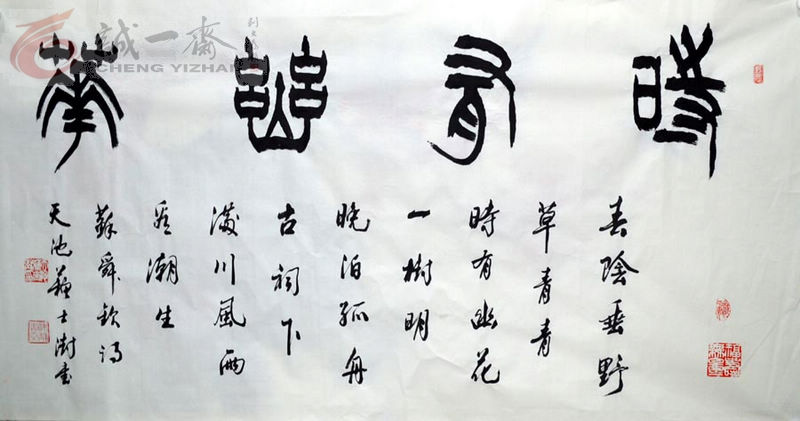 誠一齋
CHENG YIZHAI
時有幽華
春陰垂野
草青青
時有幽花
一樹明
晚泊孤舟
古祠下
滿川風雨
看潮生
蘇舜欽詩
天池蘇士澍書